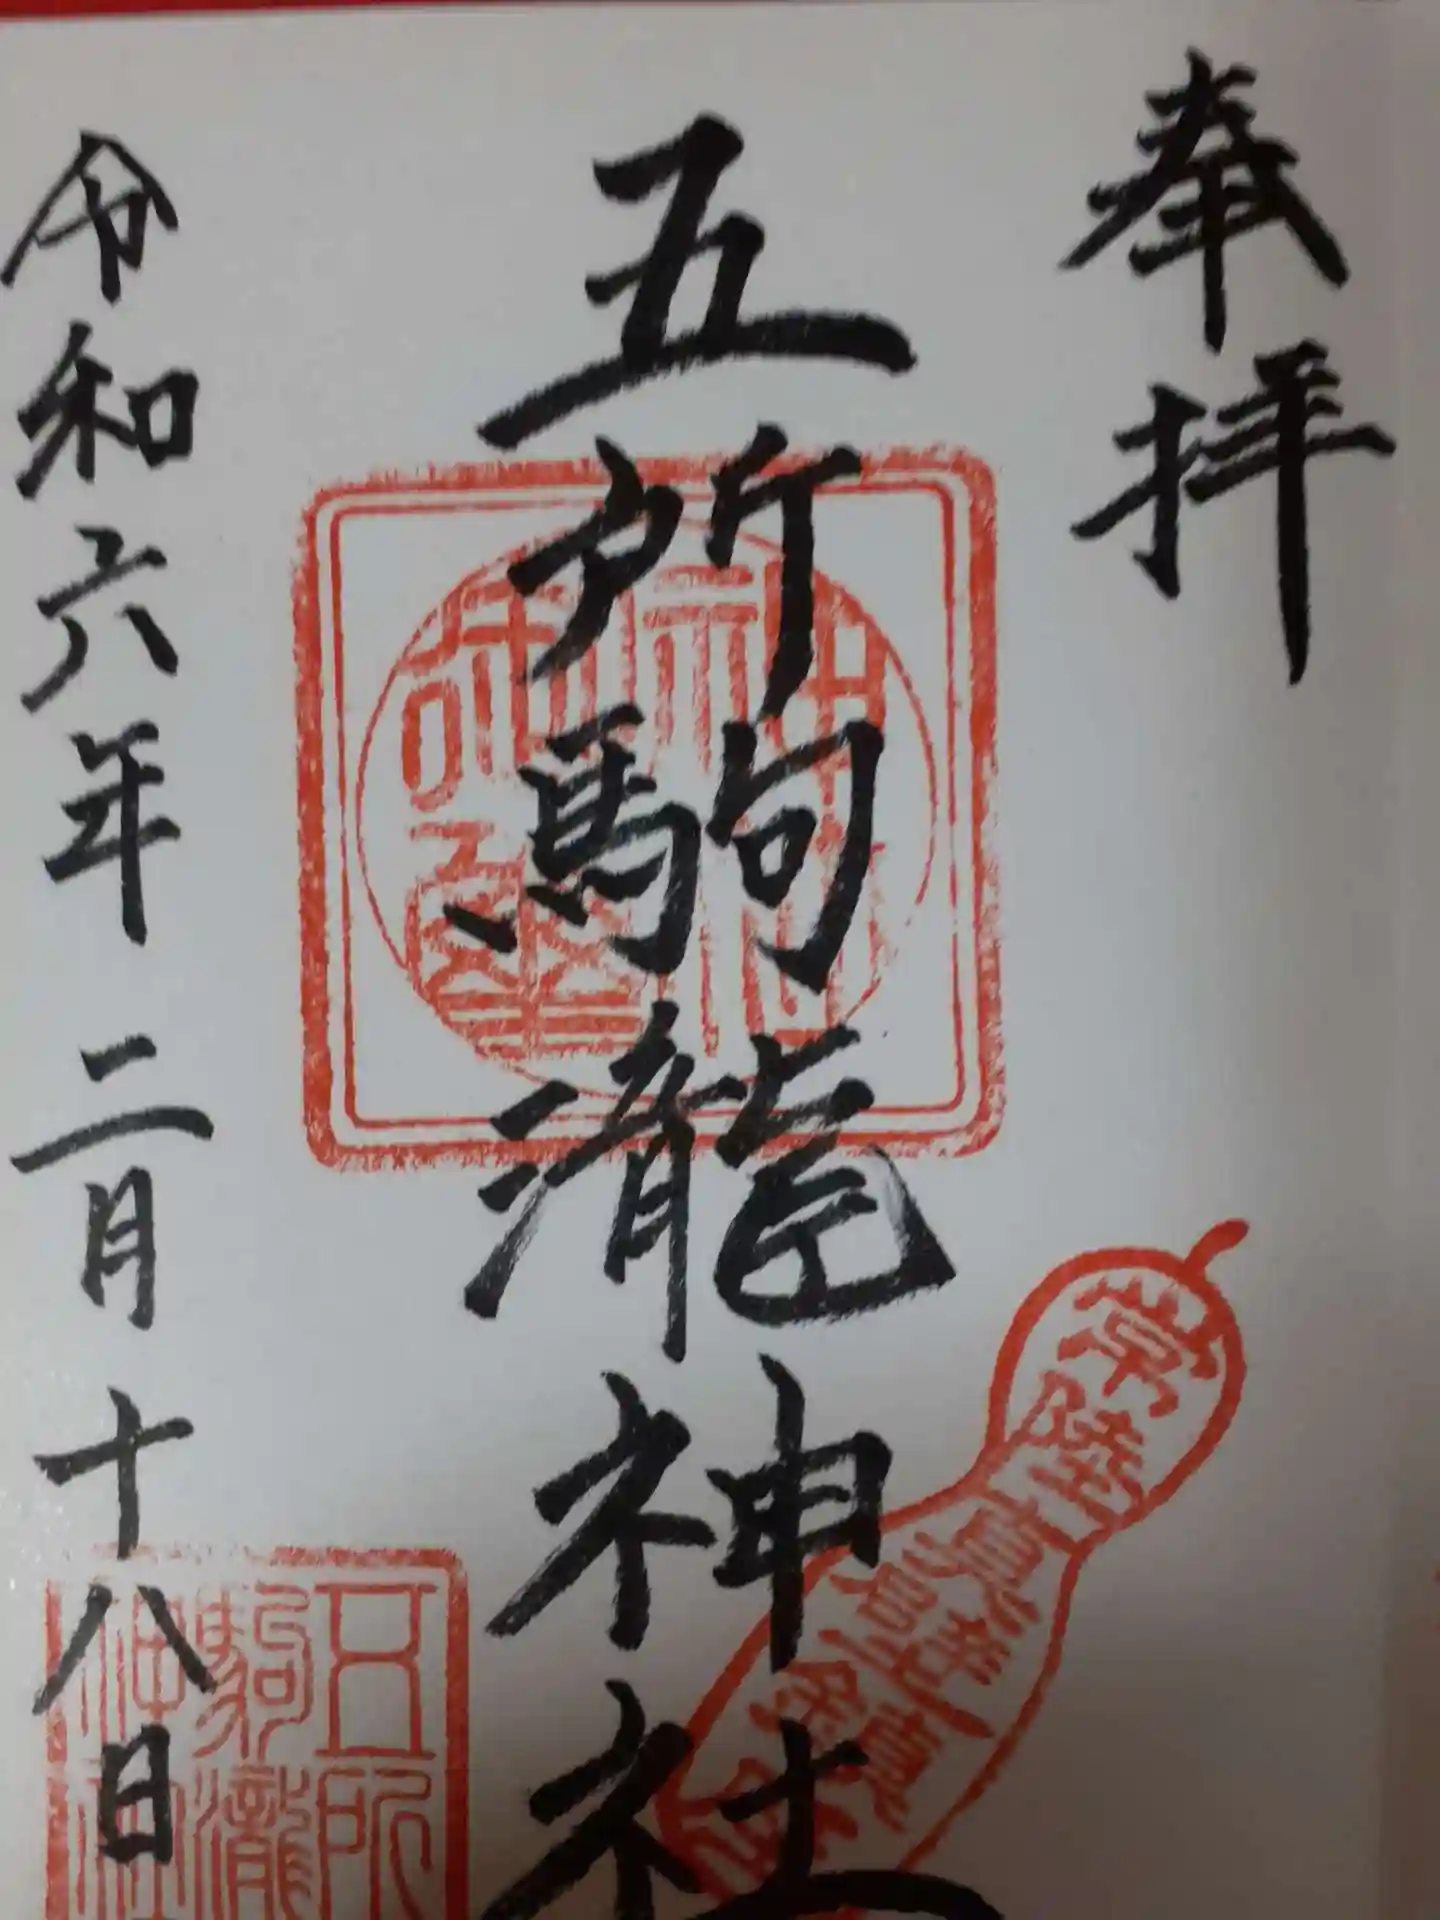 奉拝
五所駒瀧神社
令和六年二月十八日
常陸
真壁
五所
駒瀧
神社